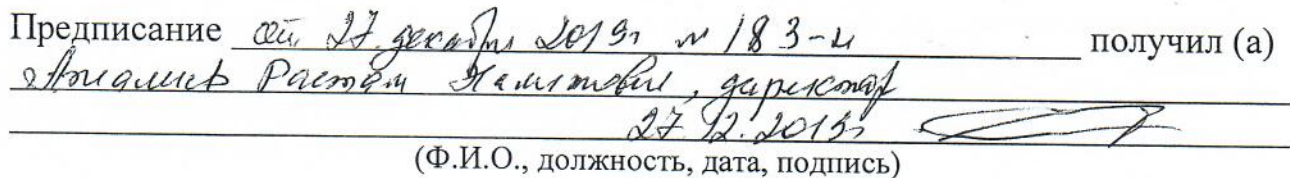 Предписание от 27 декабря 2019г № 183-и получил (а)
Растам, директор
27.12.2019г
(Ф.И.О., должность, дата, подпись)